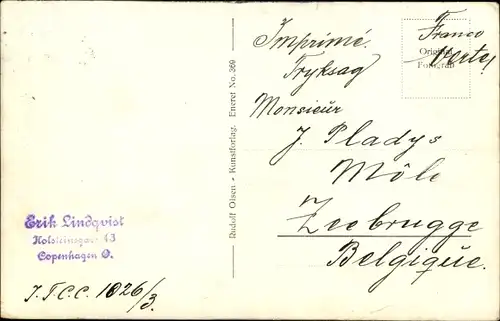 Imprimé.
Tryksag
Franco
Verte!
Original
Fotografi
Monsieur
J. Pladys
Môle
Zeebrugge
Belgique.
Rudolf Olsen - Kunstforlag. Eneret No. 369
Erik Lindqvist
Holsteinsgade 43
Copenhagen Ø.
I.T.C.C. 1026/3.